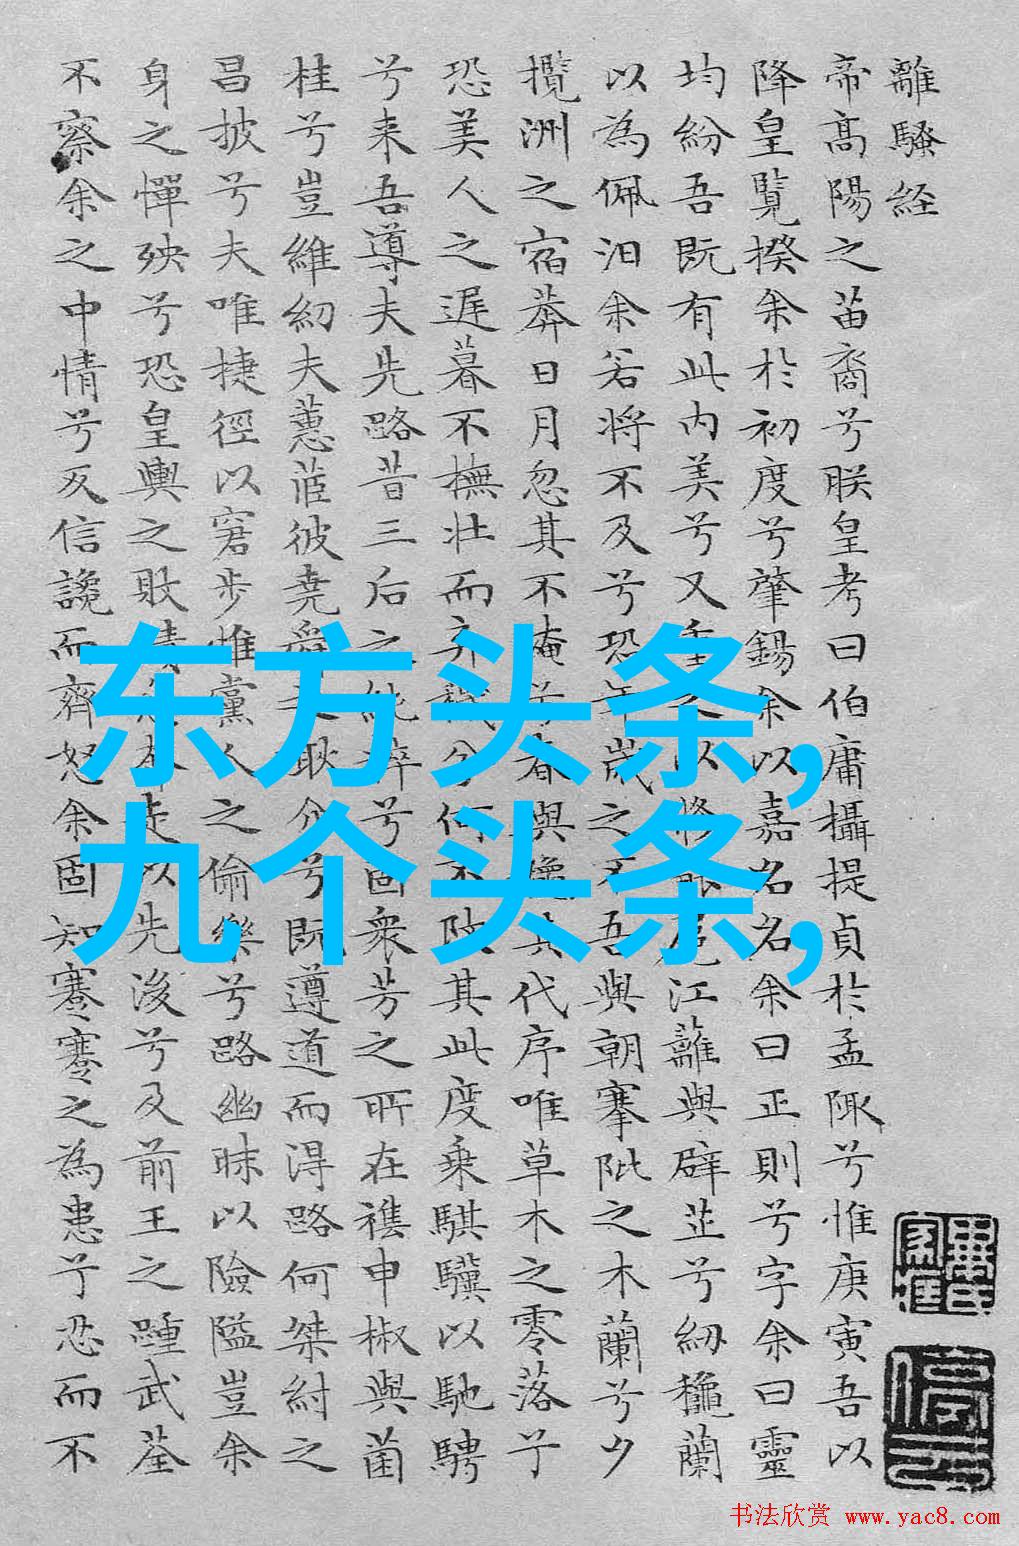 離騷経
帝高陽之苗裔兮朕皇考曰伯庸攝提貞於孟陬兮惟庚寅吾以
降皇覽揆余於初度兮肇錫余以嘉名名余曰正則兮字余曰靈
均紛吾既有此内美兮又重之以脩能扈江蘺與辟芷兮紉穐蘭
以為佩汨余若將不及兮恐年歲之不吾與朝搴阰之木蘭兮夕
攬洲之宿莽日月忽其不淹兮春與其代序唯草木之零落兮
恐美人之遲暮不撫壯而弃穢兮何不改其此度乘騏驥以馳騁
兮来吾導夫先路昔三后之純粹兮固衆芳之所在雜申椒與菌
桂兮豈維紉夫蕙茝彼堯舜之耿介兮既遵道而得路何桀紂之
昌披兮夫唯捷徑以窘步惟黨人之偷樂兮路幽昧以險隘豈余
身之憚殃兮恐皇輿之敗績忽奔走以先後兮及前王之踵武荃
不察余之中情兮反信讒而齊怒余固知謇謇之為患兮忍而不
东方头条,
九个头条,
书法欣赏 www.yac8.com